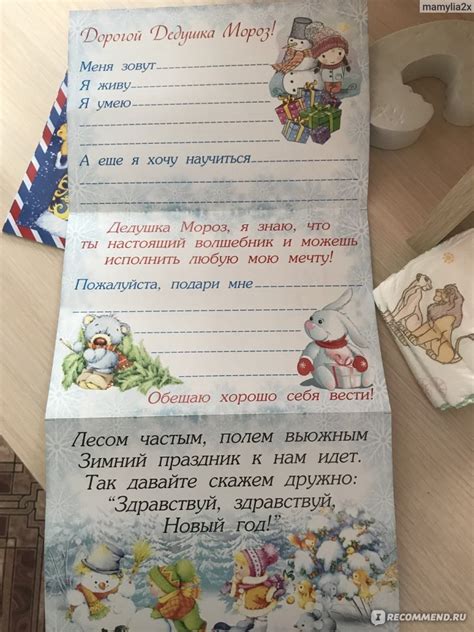 mamylia2x
Дорогой Дедушка Мороз!
Меня зовут
Я живу
Я умею
А еще я хочу научиться
Дедушка Мороз, я знаю, что
ты настоящий волшебник и можешь
исполнить любую мою мечту!
Пожалуйста, подари мне
Обещаю хорошо себя вести!
Лесом частым, полем вьюжным
Зимний праздник к нам идет.
Так давайте скажем дружно:
"Здравствуй, здравствуй,
Новый год!"
IRECOMMEND.RU